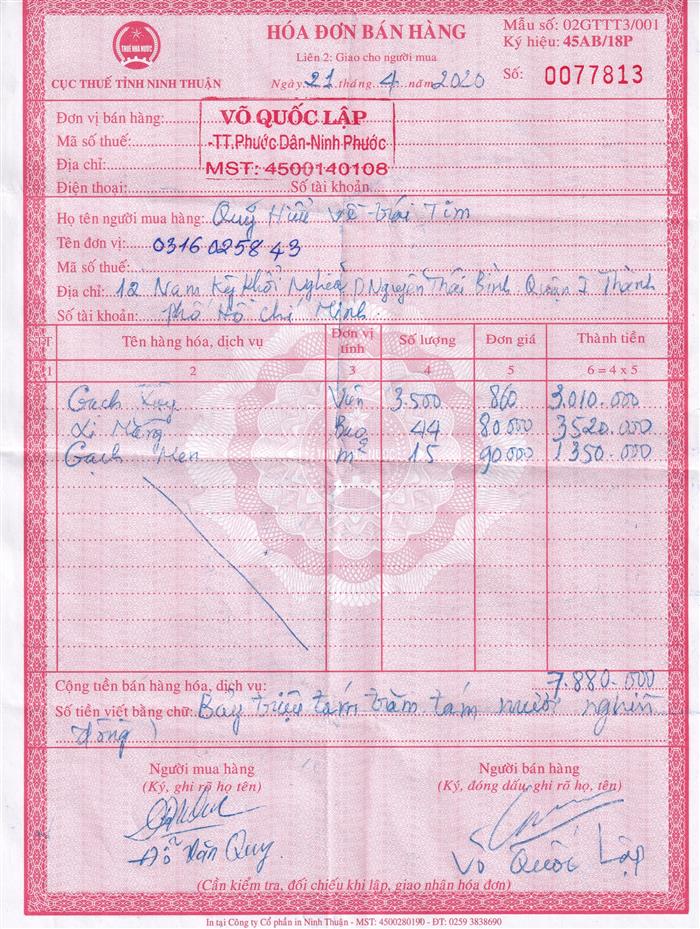 THUẾ NHÀ NƯỚC
CỤC THUẾ TỈNH NINH THUẬN
HÓA ĐƠN BÁN HÀNG
Liên 2: Giao cho người mua
Ngày 21 tháng 4 năm 2020
Mẫu số: 02GTTT3/001
Ký hiệu: 45AB/18P
Số: 0077813
Đơn vị bán hàng:
Mã số thuế:
Địa chỉ:
Điện thoại: Số tài khoản
VÕ QUỐC LẬP
-TT.Phước Dân-Ninh Phước
MST: 4500140108
Họ tên người mua hàng: Quỹ Hiểu Về Trái Tim
Tên đơn vị: 0316025843
Mã số thuế:
Địa chỉ: 12 Nam Kỳ Khởi Nghĩa P Nguyễn Thái Bình Quận 1 Thành
Số tài khoản: Phố Hồ Chí Minh.
TT Tên hàng hóa, dịch vụ Đơn vị tính Số lượng Đơn giá Thành tiền
1 2 3 4 5 6 = 4 x 5
Gạch Xây Viên 3.500 860 3.010.000
Xi Măng Bao 44 80.000 3520.000
Gạch Men m² 15 90.000 1350.000
Cộng tiền bán hàng hóa, dịch vụ: 7.880.000
Số tiền viết bằng chữ: Bảy triệu tám trăm tám mươi nghìn
đồng)
Người mua hàng
(Ký, ghi rõ họ tên)
Đỗ Văn Quy
Người bán hàng
(Ký, đóng dấu, ghi rõ họ, tên)
Võ Quốc Lập
(Cần kiểm tra, đối chiếu khi lập, giao nhận hóa đơn)
In tại Công ty Cổ phần in Ninh Thuận - MST: 4500280190 - ĐT: 0259 3838690